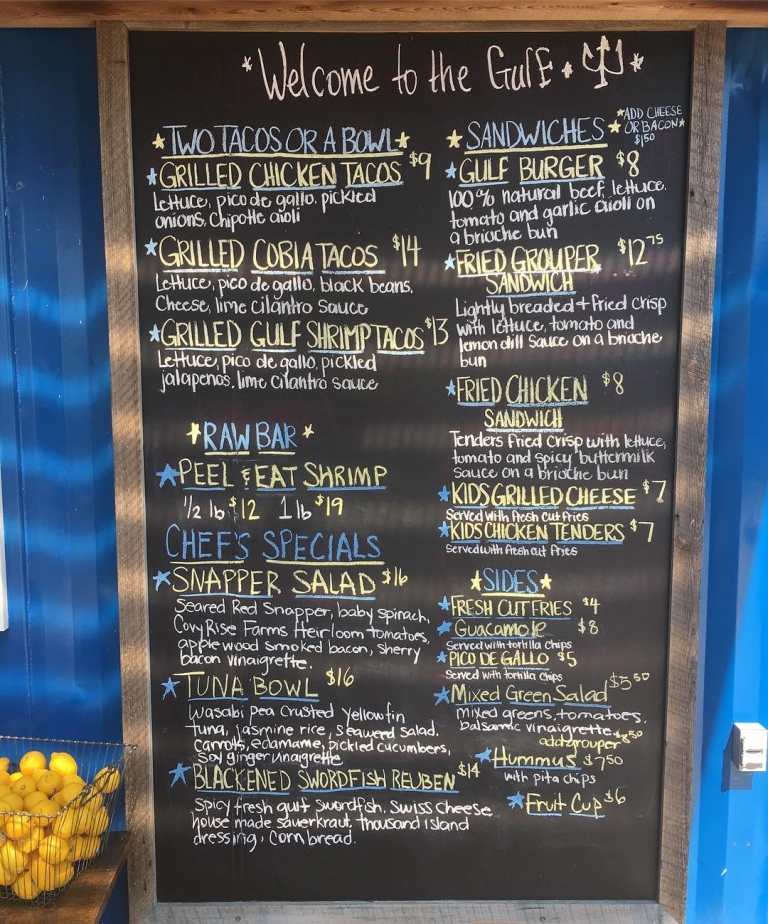 *Welcome to the Gulf*
TWO TACOS OR A BOWL
GRILLED CHICKEN TACOS $9
Lettuce, pico de gallo, pickled
onions, Chipotle aioli
GRILLED COBIA TACOS $14
Lettuce, pico de gallo, black beans,
Cheese, lime cilantro sauce
GRILLED GULF SHRIMP TACOS $13
Lettuce, pico de gallo, pickled
jalapenos, lime cilantro sauce
RAW BAR
PEEL & EAT SHRIMP
1/2 lb $12 1 lb $19
CHEF'S SPECIALS
SNAPPER SALAD $16
Seared Red Snapper, baby spinach,
Covy Rise Farms Heirloom tomatoes,
applewood smoked bacon, sherry
bacon vinaigrette.
TUNA BOWL $16
Wasabi pea crusted yellowfin
tuna, jasmine rice, seaweed salad,
carrots, edamame, pickled cucumbers,
soy ginger vinaigrette
BLACKENED SWORDFISH REUBEN $14
Spicy fresh gulf swordfish, swiss cheese
house made sauerkraut, thousand island
dressing, corn bread.
SANDWICHES
*ADD CHEESE
OR BACON*
$1.50
GULF BURGER $8
100% natural beef, lettuce,
tomato and garlic aioli on
a brioche bun
FRIED GROUPER $12.75
SANDWICH
Lightly breaded + fried crisp
with lettuce, tomato and
lemon dill sauce on a brioche
bun
FRIED CHICKEN $8
SANDWICH
Tenders fried crisp with lettuce,
tomato and spicy buttermilk
sauce on a brioche bun
KIDS GRILLED CHEESE $7
Served with fresh cut fries
KIDS CHICKEN TENDERS $7
Served with fresh cut fries
SIDES
FRESH CUT FRIES $4
Guacamole $8
Served with tortilla chips
PICO DE GALLO $5
Served with tortilla chips
Mixed Green Salad $5.50
mixed greens, tomatoes,
balsamic vinaigrette
add grouper $8.50
Hummus $7.50
with pita chips
Fruit Cup $6